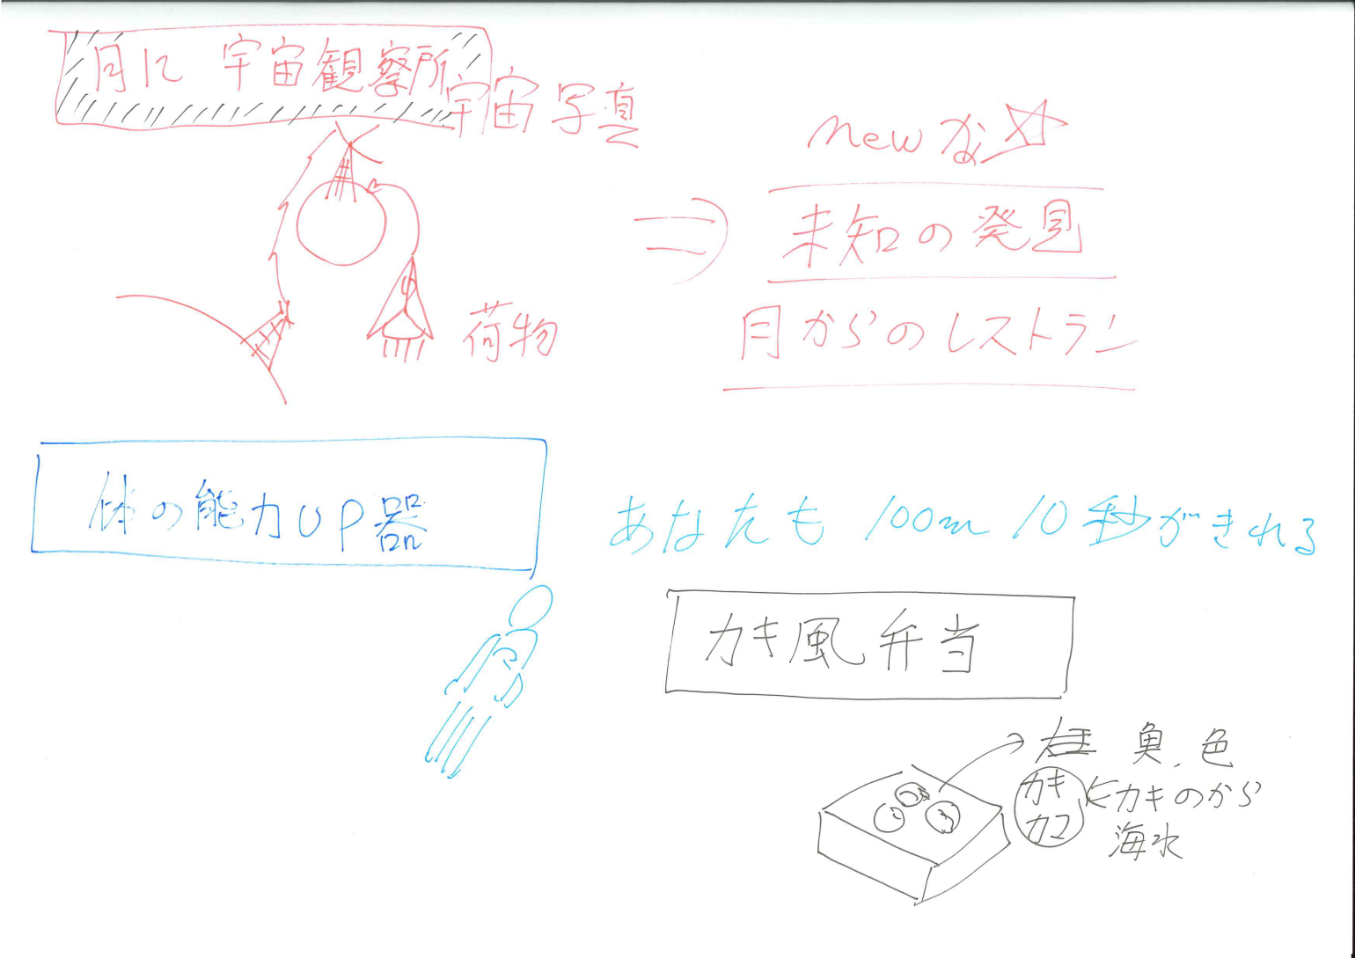 月に 宇宙観察所
宇宙写真
newな☆
未知の発見
月からのレストラン
荷物
体の能力UP器
あなたも 100m 10秒がきれる
カキ風 弁当
魚、色
カキ
カマ
カキのから
海水